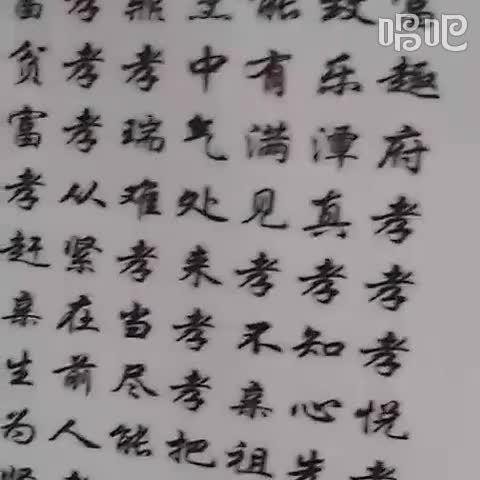 唱吧
趣府孝孝孝悦
乐潭真孝知心
能有满见孝不亲祖
中气处来孝孝把
孝瑞难孝当尽能
孝孝孝从紧在前人
贫富孝赶亲生为